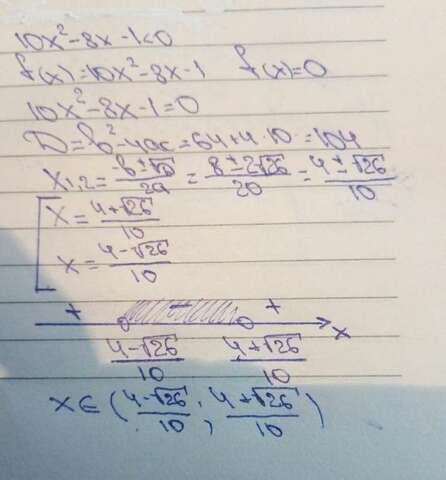 10x²-8x-1<0
f(x)=10x²-8x-1 f(x)=0
10x²-8x-1=0
D=b²-4ac=64+4·10=104
x₁,₂=(-b±√D)/2a=(8±2√26)/20=(4±√26)/10
[x=(4+√26)/10
x=(4-√26)/10
+ - + x
(4-√26)/10 (4+√26)/10
x∈((4-√26)/10; (4+√26)/10)